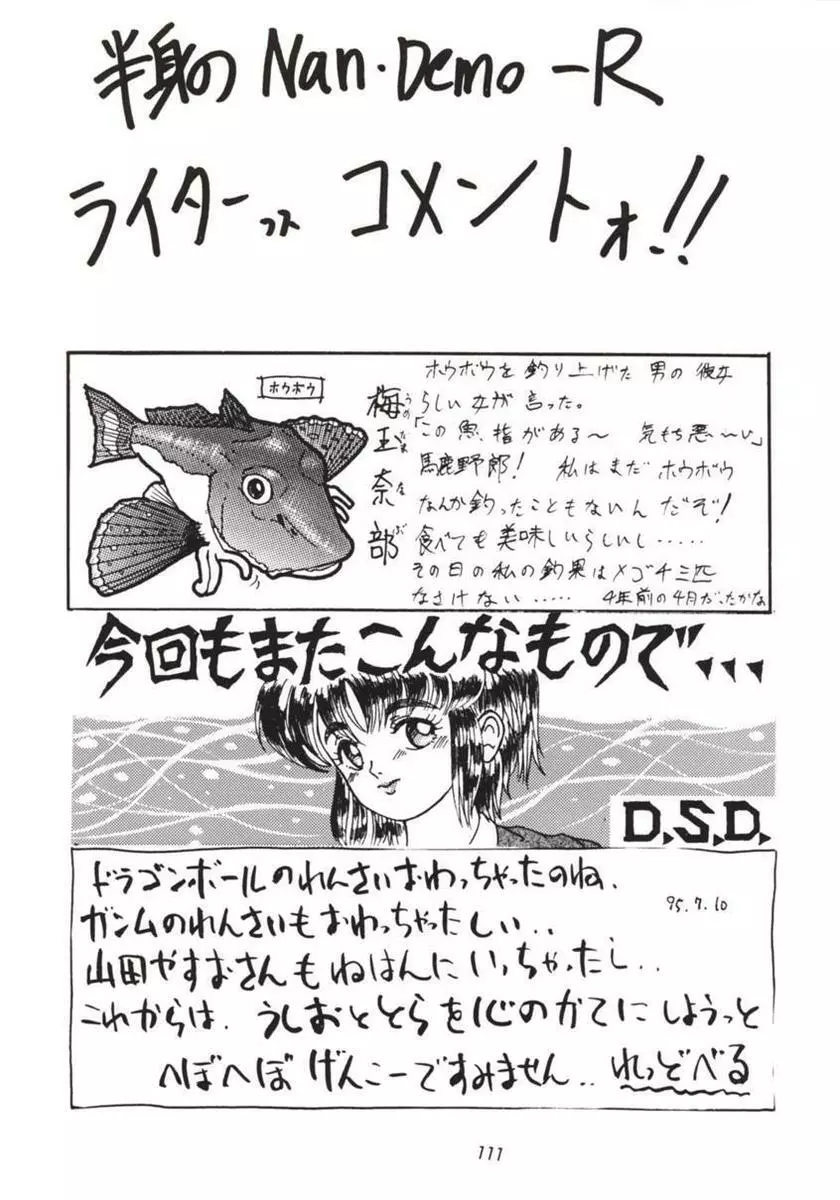 半身の Nan・Demo -R
ライターズ コメントォ!!
ホウボウ
梅玉奈部
うめ たま な べ
ホウボウを釣り上げた 男の 彼女
らしい女が 言った。
「この魚、指がある〜 気もち悪〜い」
馬鹿野郎! 私はまだ ホウボウ
なんか釣ったこともないんだぞ!
食べても美味しいらしいし・・・・・
その日の私の釣果はメゴチ三匹
なさけない・・・・・ 4年前の4月だったかな
今回もまたこんなもので、、、
D.S.D.
ドラゴンボールのれんさいおわっちゃったのね、
95.7.10
ガンムのれんさいもおわっちゃったしい..
山田やすおさんもねはんにいっちゃったし..
これからは、うしおととらを心のかてにしようっと
へぼへぼげんこーですみません.. れっどべる
111